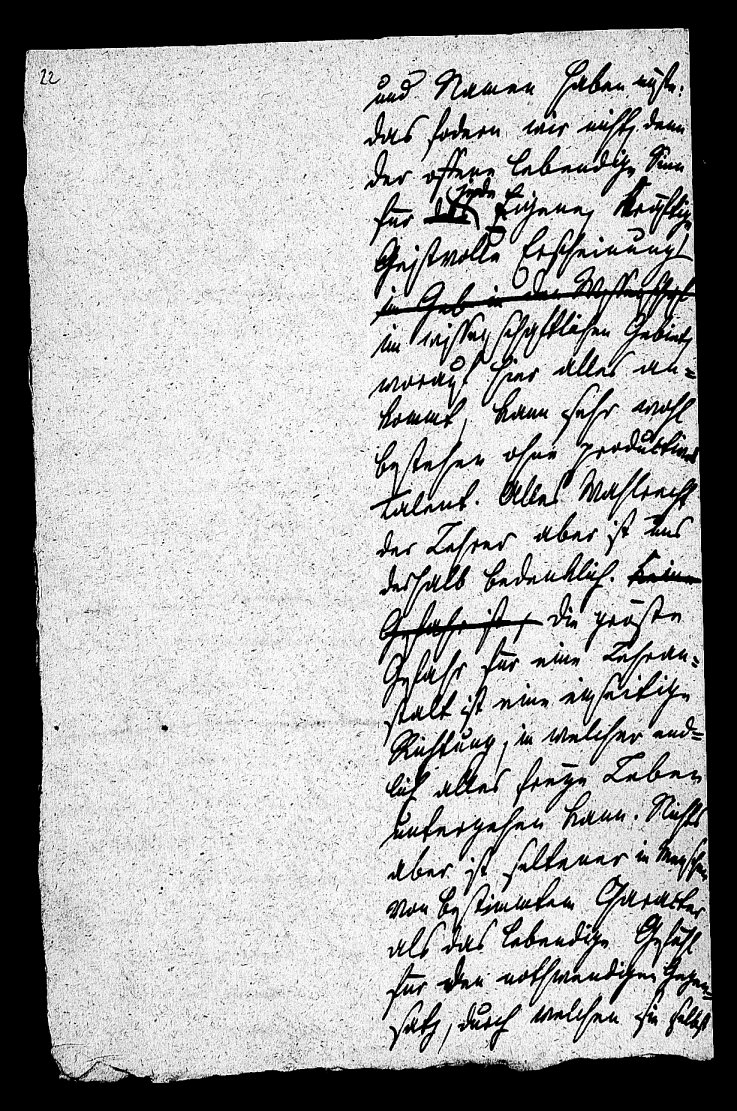 22
und Namen haben müste.
das fodern wir nicht, denn
der offene lebendige Sinn
für jede Eigene, Kräftige
Geistvolle Erscheinung
in Geb in den Wissenschaft
im wissenschaftlichen Gebiet,
worauf hier alles an=
kommt, kann sehr wohl
bestehen ohne productives
Talent. Alles Wahlrecht
der Lehrer aber ist uns
deshalb bedenklich. Keine
Gefahr ist, die gröste
Gefahr für eine Lehran=
stalt ist eine einseitige
Richtung, in welcher end=
lich alles freye Leben
untergehen kann. Nichts
aber ist seltener in Menschen
von bestimmtem Character
als das lebendige Gefühl
für den nothwendigen Gegen=
satz, durch welchen sie selbst